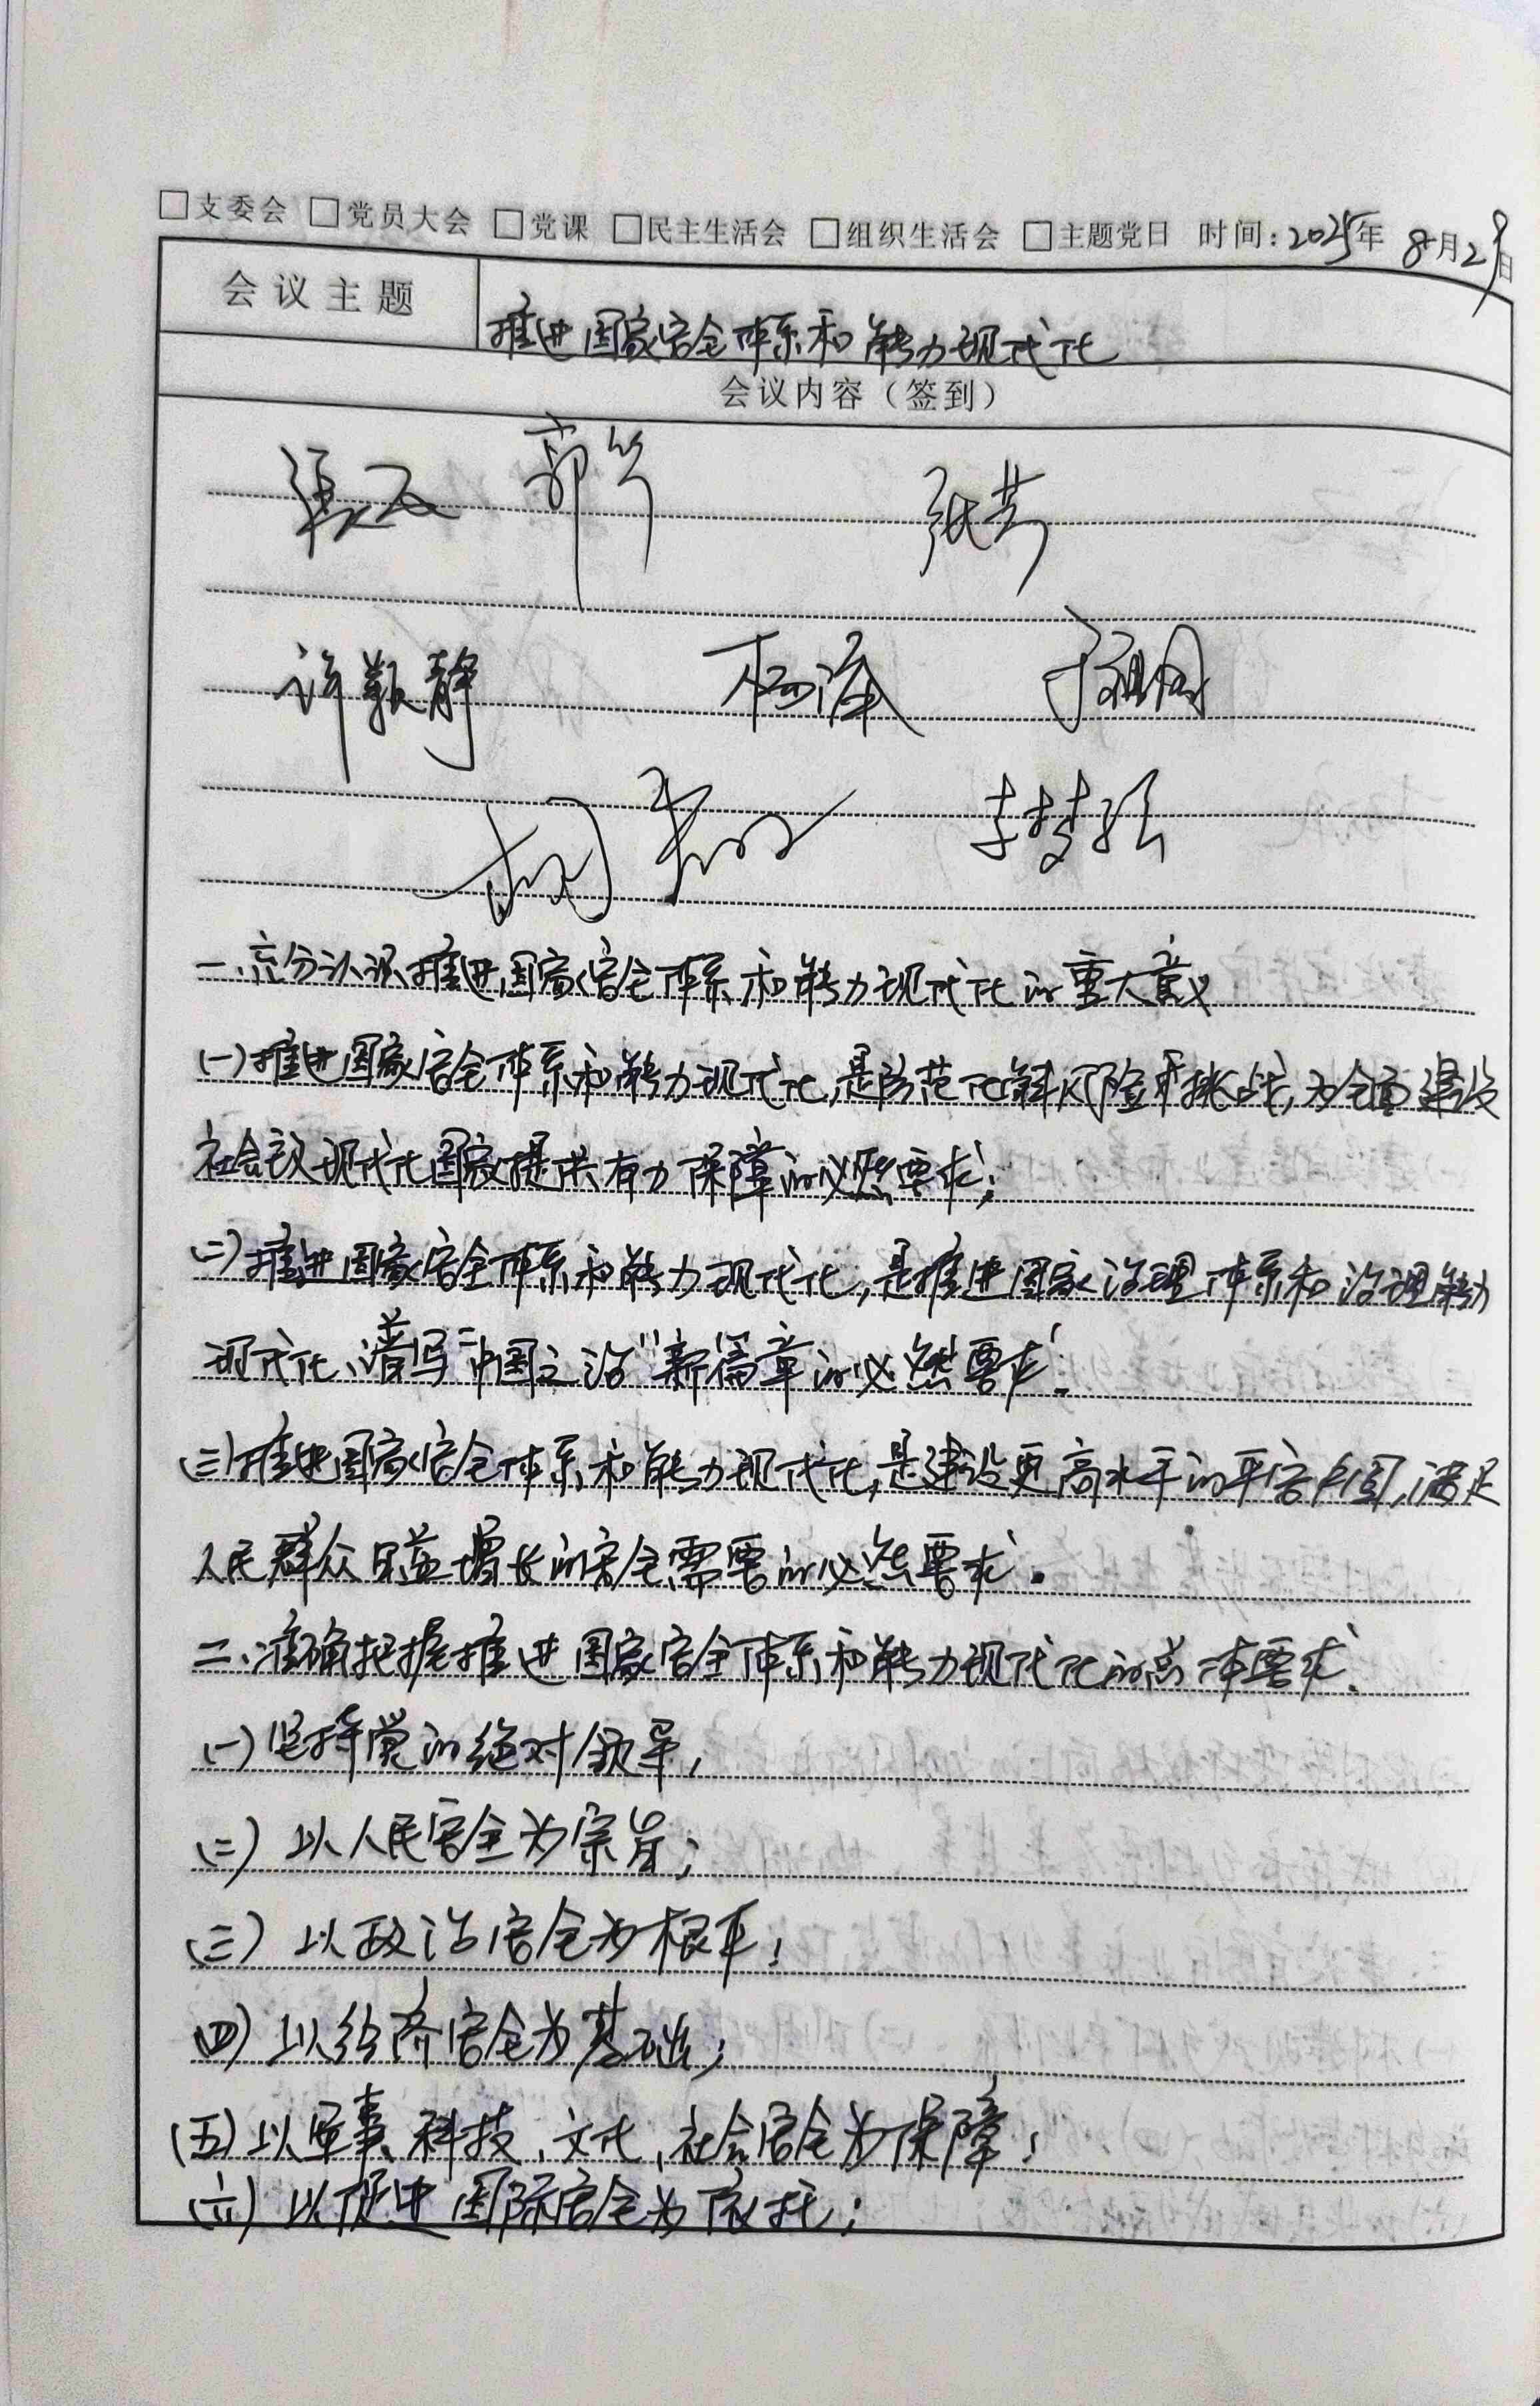 □支委会 □党员大会 □党课 □民主生活会 □组织生活会 □主题党日 时间:2025年8月29日
会议主题
推进国家安全体系和能力现代化
会议内容（签到）
郭 张芳
许靓静 杨海
李梦弘
一、充分认识推进国家安全体系和能力现代化的重大意义
(一)推进国家安全体系和能力现代化,是防范化解风险挑战,为全面建设
社会主义现代化国家提供有力保障的必然要求;
(二)推进国家安全体系和能力现代化,是推进国家治理体系和治理能力
现代化、谱写“中国之治”新篇章的必然要求;
(三)推进国家安全体系和能力现代化,是建设更高水平的平安中国,满足
人民群众日益增长的安全需要的必然要求。
二、准确把握推进国家安全体系和能力现代化的总体要求.
(一)坚持党的绝对领导,
(二)以人民安全为宗旨;
(三)以政治安全为根本;
(四)以经济安全为基础;
(五)以军事、科技、文化、社会安全为保障;
(六)以促进国际安全为依托;